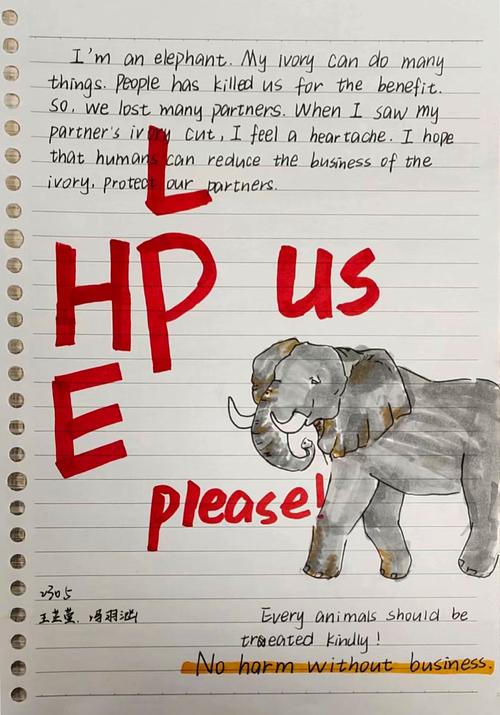 I'm an elephant. My ivory can do many
things. People has killed us for the benefit.
So, we lost many partners. When I saw my
partner's ivory cut, I feel a heartache. I hope
that humans can reduce the business of the
ivory, protect our partners.
HELP us
please!
2305
Every animals should be
treated kindly!
No harm without business.